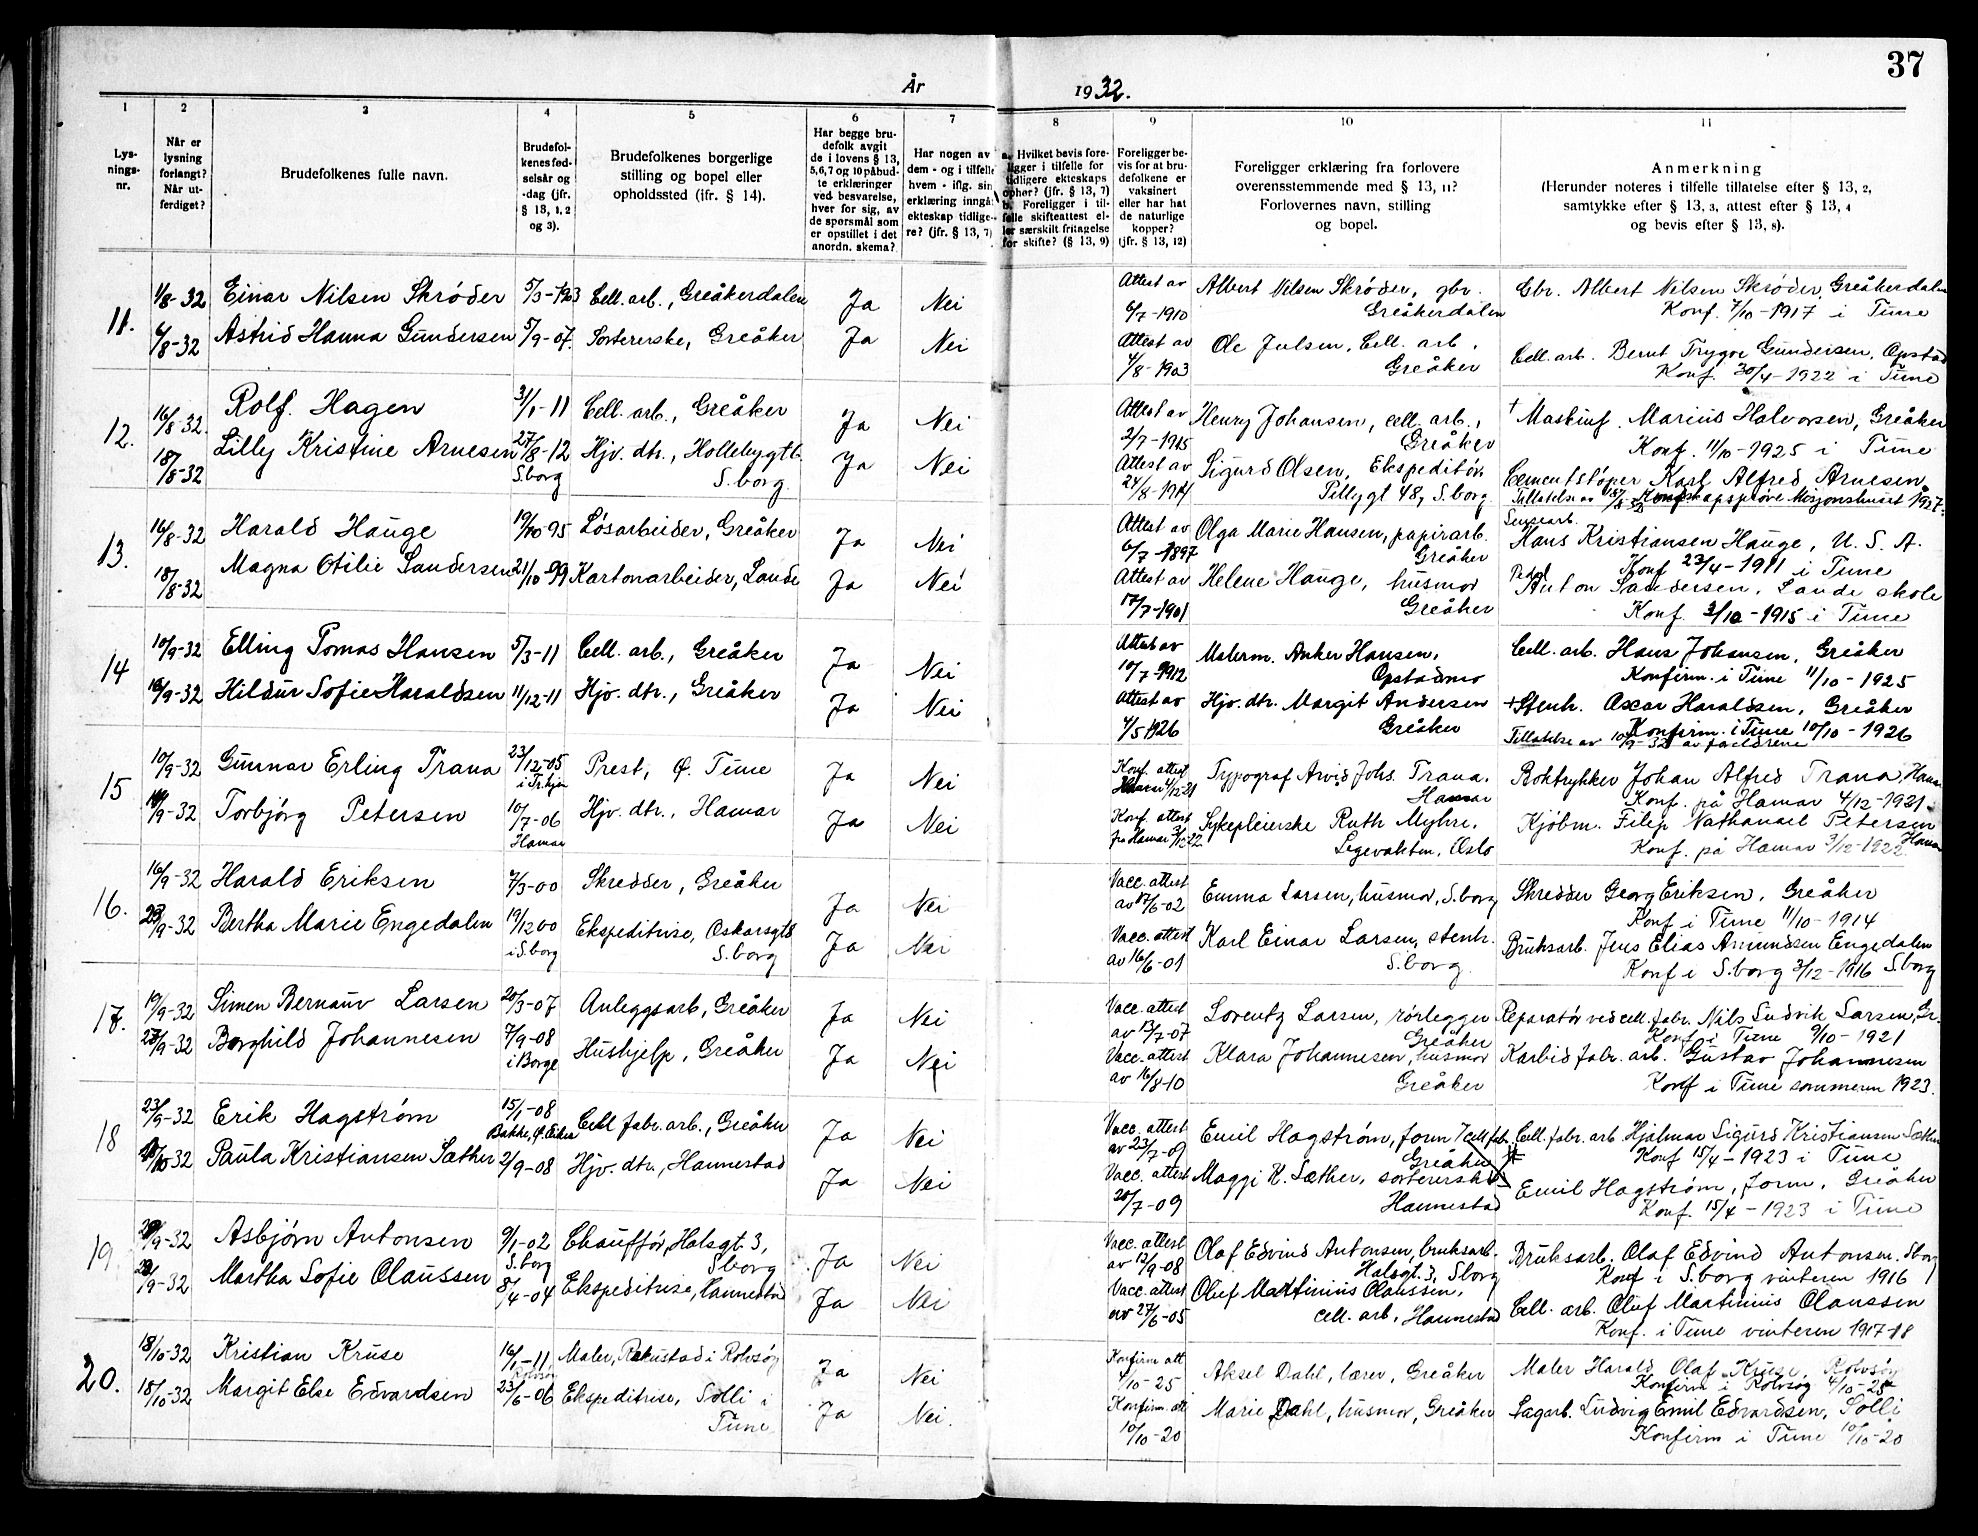 37
År 1932.
1 2 3 4 5 6 7 8 9 10 11
Lys-
nings-
nr.
Når er
lysning
forlangt?
Når ut-
ferdiget?
Brudefolkenes fulle navn.
Brudefol-
kenes fød-
selsår og
-dag (jfr.
§ 13, 1, 2
og 3).
Brudefolkenes borgerlige
stilling og bopel eller
opholdssted (jfr. § 14).
Har begge bru-
defolk avgit
de i lovens § 13,
5, 6, 7 og 10 påbud-
te erklæringer
ved besvarelse,
hver for sig, av
de spørsmål som
er opstillet i det
anordn. skema?
Har nogen av
dem - og i tilfelle
hvem - iflg. sin
erklæring inngå
ekteskap tidlige-
re? (jfr. § 13, 7)
a. Hvilket bevis fore-
ligger i tilfelle for
tidligere ekteskaps
ophør? (jfr. § 13, 7)
b. Foreligger i til-
felle skifteattest el-
ler særskilt fritagelse
for skifte? (§ 13, 9)
Foreligger be-
vis for at bru-
defolkene er
vaksinert
eller har hat
de naturlige
kopper?
(jfr. § 13, 12)
Foreligger erklæring fra forlovere
overensstemmende med § 13, 11?
Forlovernes navn, stilling
og bopel.
Anmerkning
(Herunder noteres i tilfelle tillatelse efter § 13, 2,
samtykke efter § 13, 3, attest efter § 13, 4
og bevis efter § 13, 8).
11. 1/8-32 Einar Nilsen Skrøder 5/3-1903 Cell. arb., Greåkerdalen Ja Nei Attest av 6/7-1910 Albert Nilsen Skrøder, gbr. Greåkerdalen Gbr. Albert Nilsen Skrøder, Greåkerdalen
Konf. 7/10-1917 i Tune
6/8-32 Astrid Hanna Gundersen 5/9-07. Sortererske, Greåker Ja Nei Attest av 4/8-1903 Ole Julsen, Cell. arb. Greåker Cell. arb. Bernt Trygve Gundersen, Opstad
Konf. 30/4-1922 i Tune
12. 16/8-32. Rolf Hagen 31/1-11 Cell. arb., Greåker Ja Nei Attest av 2/7-1915 Henry Johansen, cell. arb., Greåker † Maskinf. Marius Halvorsen, Greåker
Konf. 11/10-1925 i Tune
18/8-32 Lilly Kristine Arnesen 27/8-12 S.borg Hjv. dtr., Hollebygt. S.borg. Ja Nei Attest av 24/8-1914 Sigurd Olsen, Ekspeditør Pillygt 48, S.borg Cementstøper Karl Alfred Arnesen
Tillatelse av 15/8-32 Kunnskapsprøve Misjonshuset 1927.
13. 16/8-32 Harald Hauge 19/10-95 Løsarbeider, Greåker Ja Nei Attest av 6/7-1897 Olga Marie Hansen, papirarb. Greåker Hans Kristiansen Hauge, U.S.A.
Konf 23/4-1911 i Tune
18/8-32 Magna Otilie Sandersen 21/10-99 Kartonarbeider, Lande Ja Nei Attest av 17/7-1901 Helene Hauge, husmor Greåker Pedel Anton Sandersen, Lande skole
Konf. 3/10-1915 i Tune
14 10/9-32 Elling Tomas Hansen 5/3-11 Cell. arb., Greåker Ja Nei Attest av 10/7-1912 Malerm. Anker Hansen, Opstadmo Cell. arb. Hans Johansen, Greåker
Konfirm. i Tune 11/10-1925
16/9-32 Hildur Sofie Haraldsen 11/12-11 Hjv. dtr., Greåker Ja Nei Attest av 4/5-1926 Hjv. dtr. Margit Andersen Greåker + Stenh. Oscar Haraldsen, Greåker
Konfirm. i Tune 10/10-1926
Tillatelse av 10/9-32 av foreldrene
15 10/9-32 Gunnar Erling Trana 23/12-05 Prest, Ø. Tune Ja Nei Konf. attest Hamar 4/12-21 Typograf Arvid Johs. Trana, Hamar Boktrykker Johan Alfred Trana, Hamar
Konf. på Hamar 4/12-1921
/9-32 Torbjørg Petersen 10/7-06 Hamar Hjv. dtr., Hamar Ja Nei Konf. attest fra Hamar 3/12-22 Sykepleierske Ruth Myhre, Legevakten, Oslo Kjøbm. Filip Nathanael Petersen Hamar
Konf. på Hamar 3/12-1922
16. 16/9-32 Harald Eriksen 7/3-00 Skredder, Greåker Ja Nei Vacc. attest av 17/6-02 Emma Larsen, husmor, S.borg Skredder Georg Eriksen, Greåker
Konf i Tune 11/10-1914
23/9-32 Bertha Marie Engedalen 19/12 00 i S.borg Ekspeditrise, Oskarsgt 8 S.borg Ja Nei Vacc. attest av 16/6-01 Karl Einar Larsen, stenh. S.borg. Bruksarb. Jens Elias Amundsen Engedalen
Konf i S.borg 3/12-1916 S.borg
17. 19/9-32 Simen Bernauv Larsen 20/3-07 Anleggsarb, Greåker Ja Nei Vacc. attest av 13/7-07 Lorentz Larsen, rørlegger Greåker Reparatør ved cell. fabr. Nils Ludvik Larsen, Gr.
Konf i Tune 9/10-1921
27/9-32 Borghild Johannesen 7/9-08 i Borge Hushjelp, Greåker Ja Nei Vacc. attest av 16/8-10 Klara Johannesen, husmor Greåker Karbidfabr. arb. Gustav Johannesen
Konf i Tune sommeren 1923.
18 23/9-32 Erik Hagstrøm 15/1-08 Cell fabr. arb., Greåker Ja Nei Vacc. attest av 23/7-09 Emil Hagstrøm, form Greåker Cell. fabr. arb. Hjalmar Sigurd Kristiansen Sæther
Konf 15/4-1923 i Tune
/10 32 Paula Kristiansen Sæther 2/9-08 Hjv. dtr., Hannestad Ja Nei Vacc. attest 20/7-09 Maggi K. Sæther, sortererske Hannestad Emil Hagstrøm, form, Greåker
Konf. 15/4-1923 i Tune
19. /9-32 Asbjørn Antonsen 9/1-02 S.borg Chauffør, Halsgt. 3, S.borg Ja Nei Vacc. attest av 12/9-08 Olaf Edvind Antonsen, bruksarb. Halsgt. 3, S.borg Bruksarb. Olaf Edvind Antonsen. S.borg
Konf i S.borg vinteren 1916
/9-32 Martha Sofie Olaussen 8/4-04 Ekspeditrise, Hannestad Ja Nei Vacc. attest av 27/6-05 Oluf Martinius Olaussen, cell. arb., Hannestad Cell. arb. Oluf Martinius Olaussen
Konf. i Tune vinteren 1917-18
20. 18/10-32 Kristian Kruse 16/1-11 Rolvsøy Maler, Rekustad i Rolvsøy Ja Nei Konfirm att 4/10-25 Aksel Dahl, lærer, Greåker Maler Harald Olaf Kruse, Rolvsøy
Konfirm i Rolvsøy 4/10-25
18/10-32 Margit Else Edvardsen 23/6-06 Ekspeditrise, Solli i Tune Ja Nei. Konfirm. att 10/10-20 Marie Dahl, husmor, Greåker Sagarb. Ludvig Emil Edvardsen, Solli
Konfirm i Tune 10/10-20